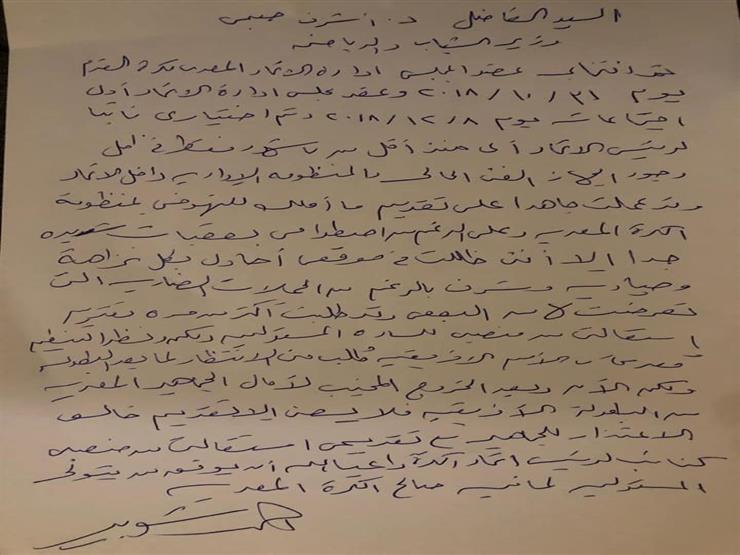 السيد الفاضل د. أشرف صبحى
وزير الشباب والرياضة
تم انتخابى عضو مجلس ادارة الاتحاد المصرى لكرة القدم
يوم ٣١ / ١٠ / ٢٠١٨ وعقد مجلس ادارة الاتحاد أول
اجتماعاته يوم ٨ / ١٢ / ٢٠١٨ وتم اختيارى نائبا
لرئيس الاتحاد أى منذ أقل من شهور فقط فى ظل
وجود الجهاز الفنى الحالى والمنظومة الإدارية داخل الاتحاد
وقد عملت جاهدا على تقديم ما أملك للنهوض بمنظومة
الكرة المصرية وعلى الرغم من اصطدامى بعقبات شديده
جدا إلا أننى ظللت فى موقعى أحاول بكل نزاهة
وحيادية وشرف بالرغم من الحملات الضارية التى
تعرضت لها من البعض وقد طلبت أكثر من مره تقديم
استقالتى من منصبى للساده المسئولين ولكن نظرا لتنظيم
مصر كأس الأمم الأفريقية طلب منى الانتظار لما بعد البطولة
ولكن الآن وبعد الخروج المخيب لآمال الجماهير المصرية
من البطولة الأفريقية فلا يسعنى إلا تقديم خالص
الاعتذار للجماهير مع تقديمى استقالتى من منصبى
كنائب لرئيس اتحاد الكرة داعيا الله أن يوفق من يتولى
المسئولية لما فيه صالح الكرة المصرية
أحمد شوبير